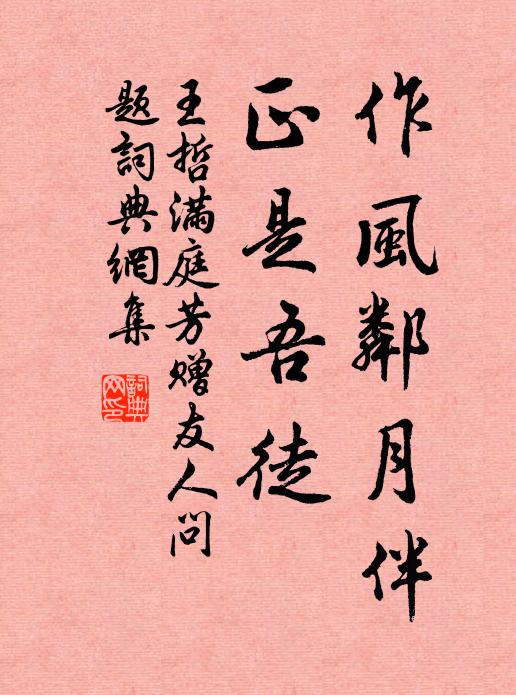 作風鄰月伴
正是吾徒
王哲滿庭芳赠友人問
題詞典網集
詞典
网印